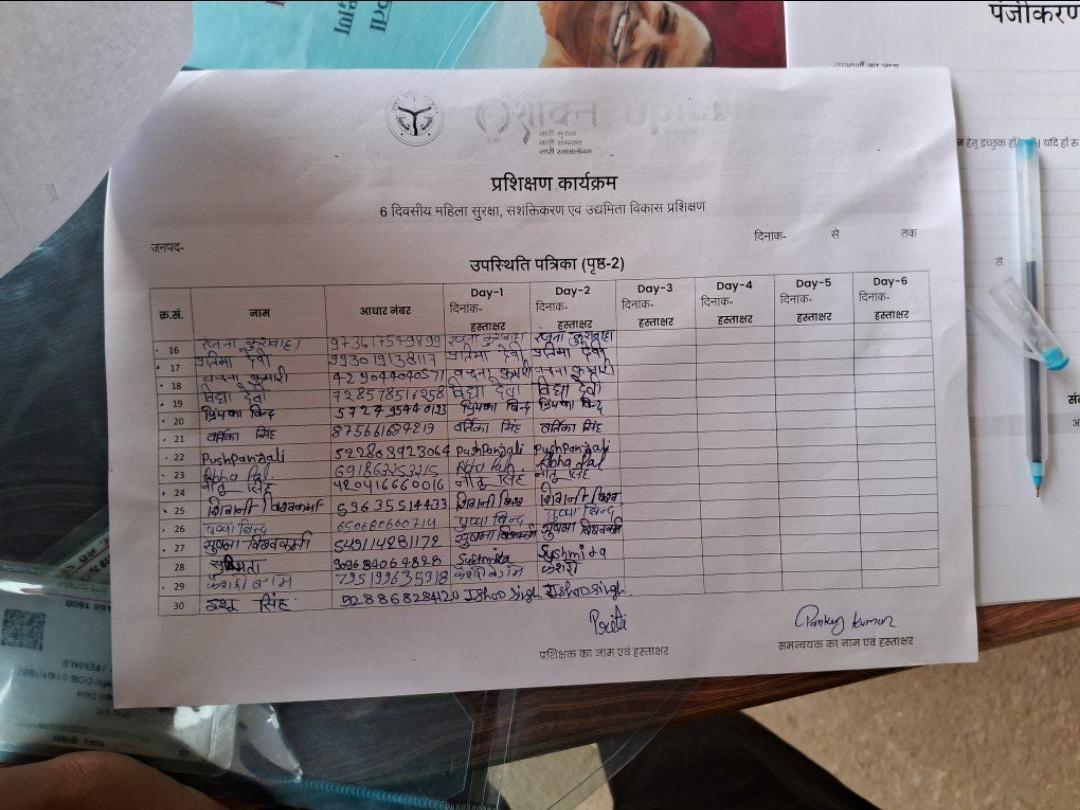 पंजीकरण
प्रशिक्षण कार्यक्रम
6 दिवसीय महिला सुरक्षा, सशक्तिकरण एवं उद्यमिता विकास प्रशिक्षण
जनपद- दिनांक- से तक
उपस्थिति पत्रिका (पृष्ठ-2)
क्र.सं. नाम आधार नंबर Day-1 दिनांक- हस्ताक्षर Day-2 दिनांक- हस्ताक्षर Day-3 दिनांक- हस्ताक्षर Day-4 दिनांक- हस्ताक्षर Day-5 दिनांक- हस्ताक्षर Day-6 दिनांक- हस्ताक्षर
16 रंजना कुशवाहा रंजना कुशवाहा रंजना कुशवाहा
17 प्रतिमा देवी 993019138117 प्रतिमा देवी प्रतिमा देवी
18 वन्दना कुमारी 429044040571 वन्दना कुमारी वन्दना कुमारी
19 विद्या देवी 728578516258 विद्या देवी विद्या देवी
20 प्रियंका बिन्द प्रियंका बिन्द प्रियंका बिन्द
21 वर्तिका सिंह 875661684219 वर्तिका सिंह वर्तिका सिंह
22 PushPanjali 522803923064 PushPanjali PushPanjali
23 Abha Pal 691863253215 Abha Pal Abha Pal
24 नीतू सिंह 420416660016 नीतू सिंह नीतू सिंह
25 शिवानी विश्वकर्मा 636355144 33 शिवानी विश्व शिवानी विश्व
26 पुष्पा बिन्द 650660660714 पुष्पा बिन्द पुष्पा बिन्द
27 सुषमा विश्वकर्मा 549114281172 सुषमा विश्वकर्मा सुषमा विश्वकर्मा
28 909684064828 Sushmita Sushmita
29 795199635918 केशरी
30 इशू सिंह 928868284120 Ishoo Singh Ishoo Singh.
Priti Pankaj kumar
प्रशिक्षक का नाम एवं हस्ताक्षर समन्वयक का नाम एवं हस्ताक्षर